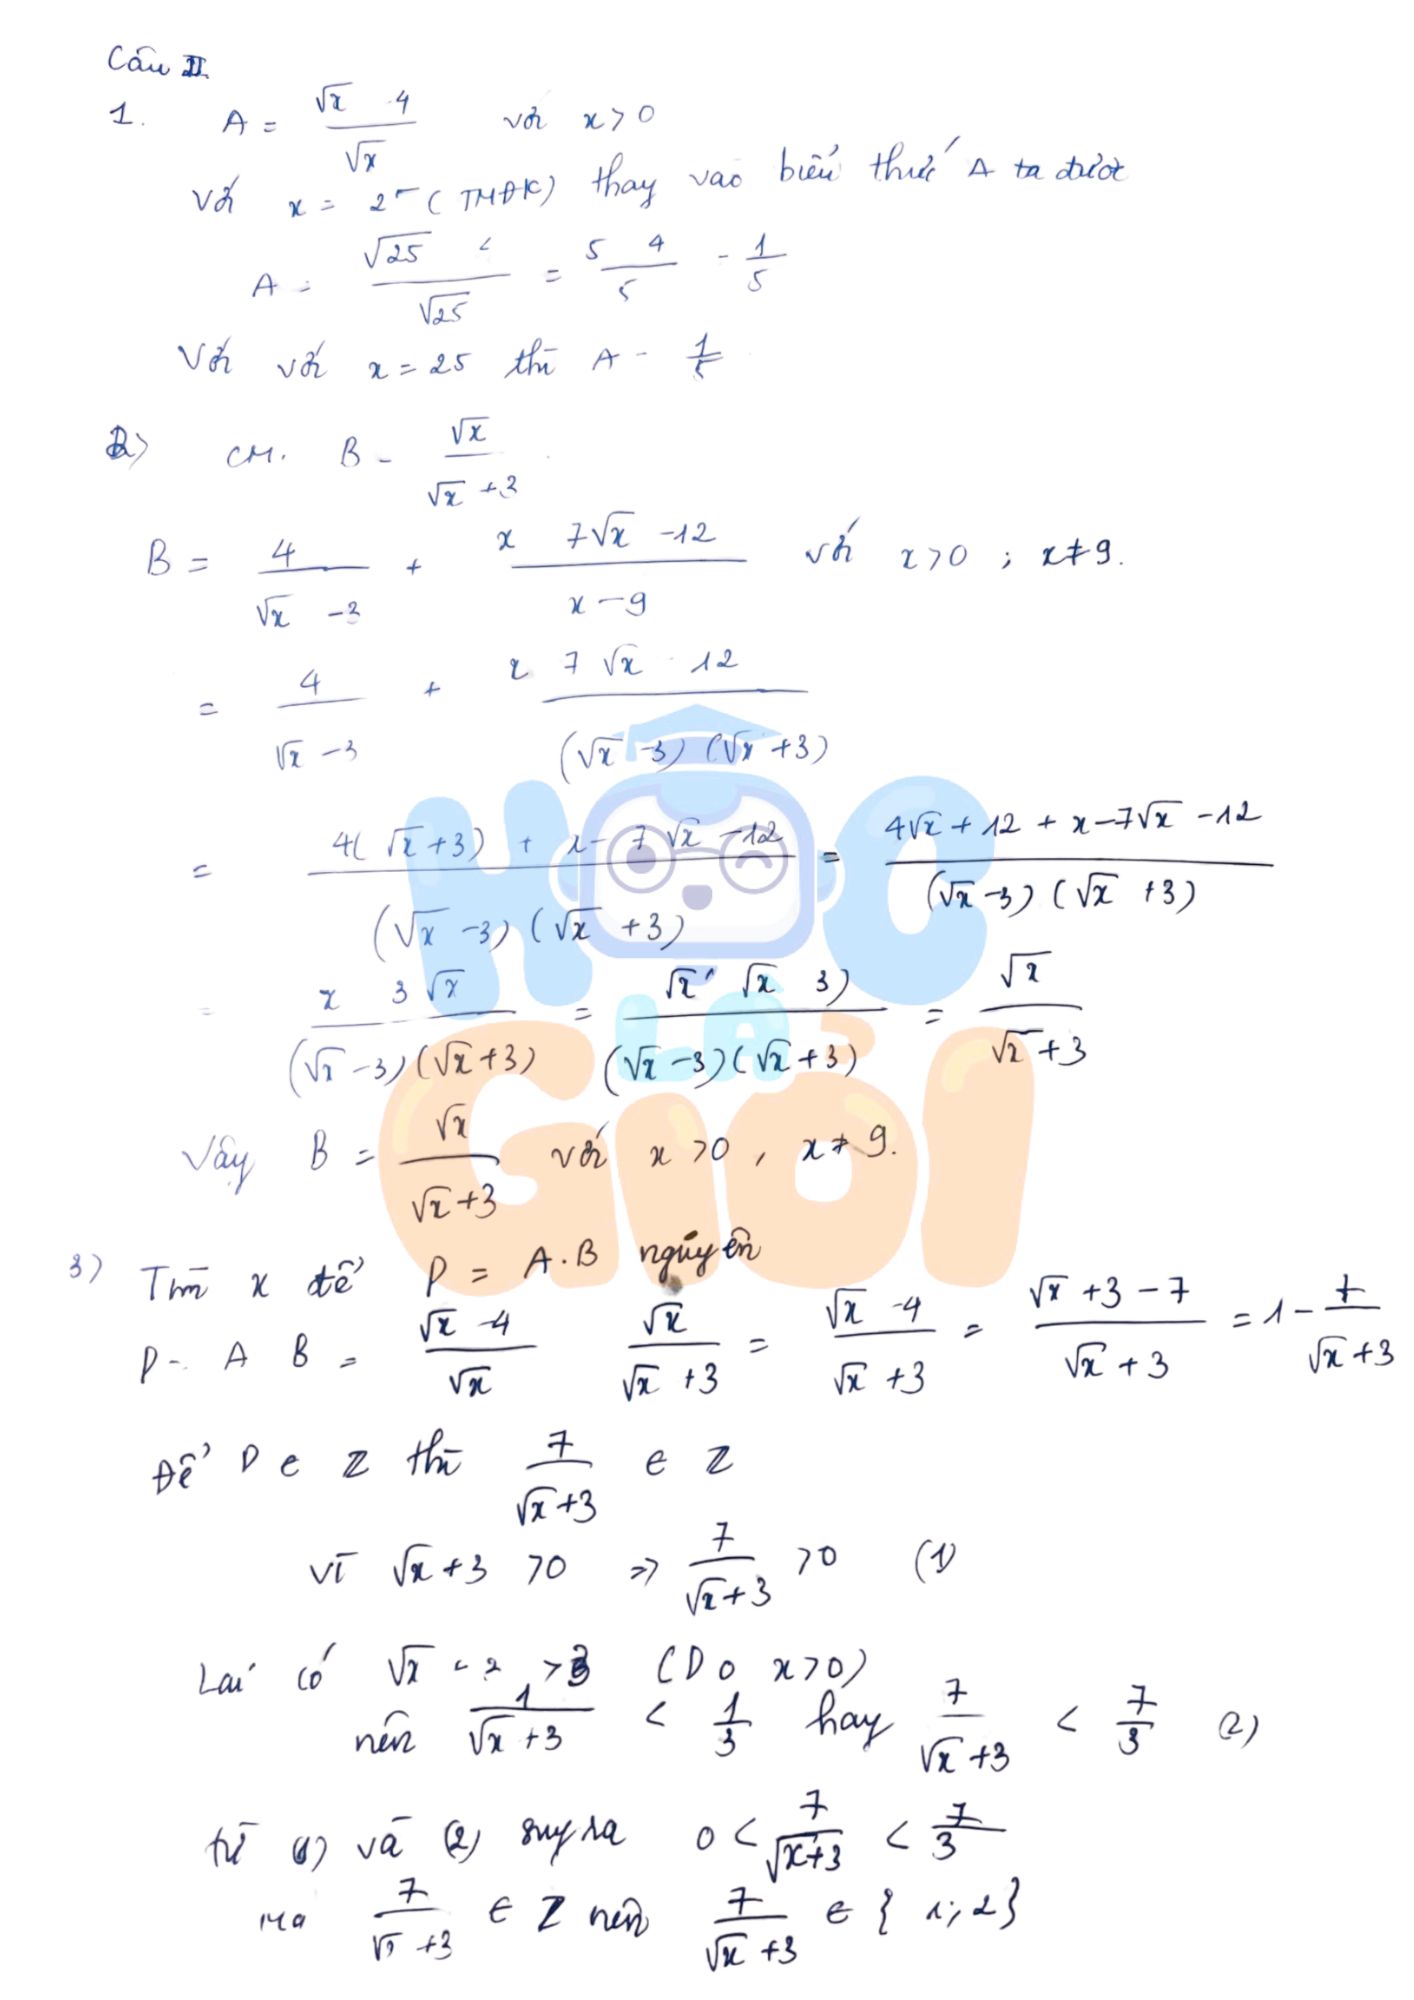 Câu II
1. A = \frac{\sqrt{x} 4}{\sqrt{x}} với x > 0
Với x = 25 (TMĐK) thay vào biểu thức A ta được
A = \frac{\sqrt{25} 4}{\sqrt{25}} = \frac{5 4}{5} - \frac{1}{5}
Với với x = 25 thì A - \frac{1}{5}
2) CM. B - \frac{\sqrt{x}}{\sqrt{x} + 3}
B = \frac{4}{\sqrt{x} - 3} + \frac{x 7\sqrt{x} - 12}{x - 9} với x > 0 ; x ≠ 9.
= \frac{4}{\sqrt{x} - 3} + \frac{x 7\sqrt{x} - 12}{(\sqrt{x} - 3)(\sqrt{x} + 3)}
= \frac{4(\sqrt{x} + 3) + x - 7\sqrt{x} - 12}{(\sqrt{x} - 3)(\sqrt{x} + 3)} = \frac{4\sqrt{x} + 12 + x - 7\sqrt{x} - 12}{(\sqrt{x} - 3)(\sqrt{x} + 3)}
= \frac{x 3\sqrt{x}}{(\sqrt{x} - 3)(\sqrt{x} + 3)} = \frac{\sqrt{x} (\sqrt{x} 3)}{(\sqrt{x} - 3)(\sqrt{x} + 3)} = \frac{\sqrt{x}}{\sqrt{x} + 3}
Vậy B = \frac{\sqrt{x}}{\sqrt{x} + 3} với x > 0 , x ≠ 9.
3) Tìm x để P = A.B nguyên
P = A B = \frac{\sqrt{x} - 4}{\sqrt{x}} \frac{\sqrt{x}}{\sqrt{x} + 3} = \frac{\sqrt{x} - 4}{\sqrt{x} + 3} = \frac{\sqrt{x} + 3 - 7}{\sqrt{x} + 3} = 1 - \frac{7}{\sqrt{x} + 3}
Để P ∈ Z thì \frac{7}{\sqrt{x} + 3} ∈ Z
Vì \sqrt{x} + 3 > 0 => \frac{7}{\sqrt{x} + 3} > 0 (1)
Lại có \sqrt{x} + 3 > 3 (Do x > 0)
nên \frac{1}{\sqrt{x} + 3} < \frac{1}{3} hay \frac{7}{\sqrt{x} + 3} < \frac{7}{3} (2)
Từ (1) và (2) suy ra 0 < \frac{7}{\sqrt{x} + 3} < \frac{7}{3}
Mà \frac{7}{\sqrt{x} + 3} ∈ Z nên \frac{7}{\sqrt{x} + 3} ∈ { 1; 2 }
HỌC
LÀ
GIỎI